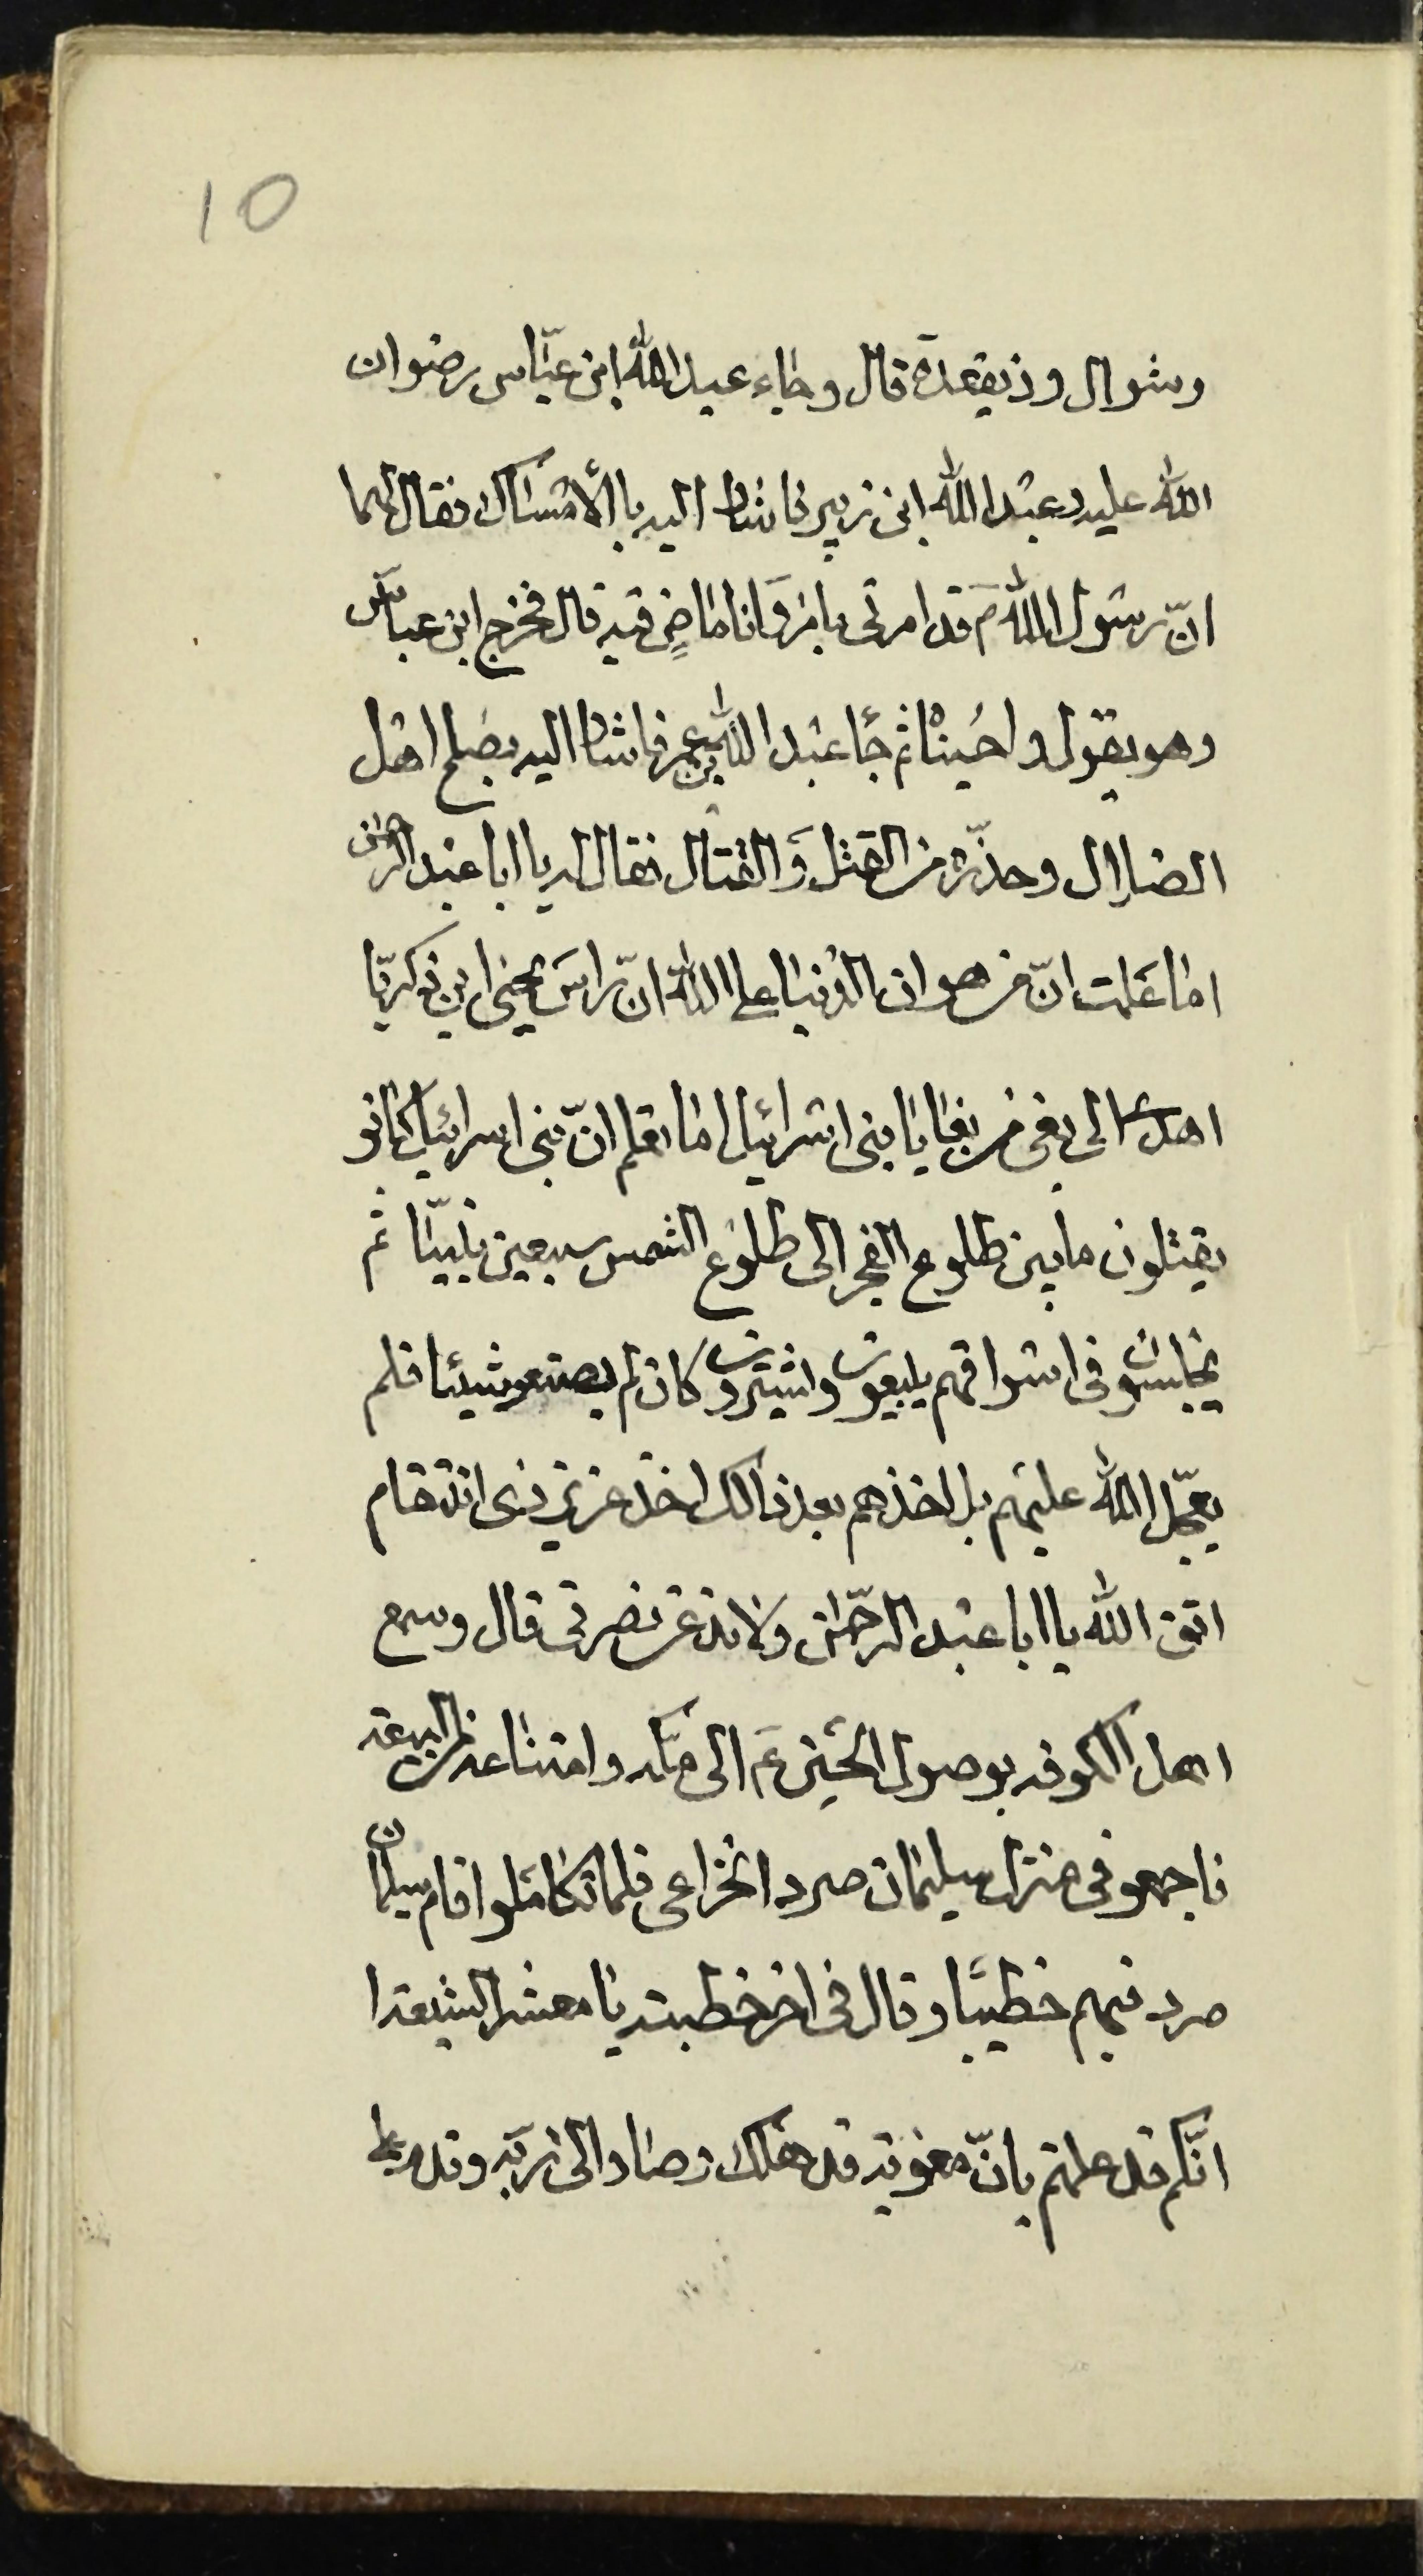 10
وشوال وذيقعدة قال وجاء عبد الله ابن عبّاس رضوان
الله عليه وعبد الله ابن زبير فاشار اليه بالأمساك فقال لهما
انّ رسول الله ص قد امرني بامر وَانا ماضٍ فيه قال فخرج ابن عباس
وهو يقول وا حُسيناه ثم جأ عبد الله بن عمر فاشار اليه بصلح اهل
الضلال وحذّره من القتل وَالقتال فقال له يا ابا عبد الرحمن
اما علمت انّ من هوان الدنيا على الله انّ راسَ يحيى ابن زكريّا
اهدى الى بغى من بغايا بنى اسرائيل اما تعلم انّ بنى اسرائيل كانو
يقتلون ما بين طلوع الفجر الى طلوع الشمس سبعين نبيّا ثم
يجلسون في اسواقهم يبيعون واشترون كان لم يصنعو شيئا فلم
يعجّل الله عليهم بل اخذهم بعد ذالك اخذ عزيز ذى انتقام
اتق الله يا ابا عبد الرّحمن ولا تدعن نصرتى قال وسمع
اهل الكوفه بوصول الحسين ع الى مكه وامتناعه من البيعه
فاجمعو في منزل سليمان صرد الخزاعى فلما تكاملوا قام سليمان
صرد فيهم خطيبًا وقال في اخر خطبته يا معشر الشيعه ا
انّكم قد علمتم بانّ معويه قد هلك وصار الى ربّه وقد